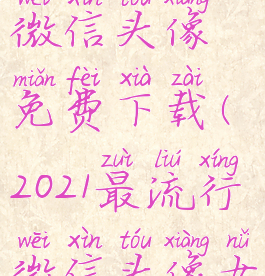 wēi xìn tóu xiàng
微信头像
miǎn fèi xià zài
免费下载(
zuì liú xíng
2021最流行
wēi xìn tóu xiàng nǚ
微信头像女